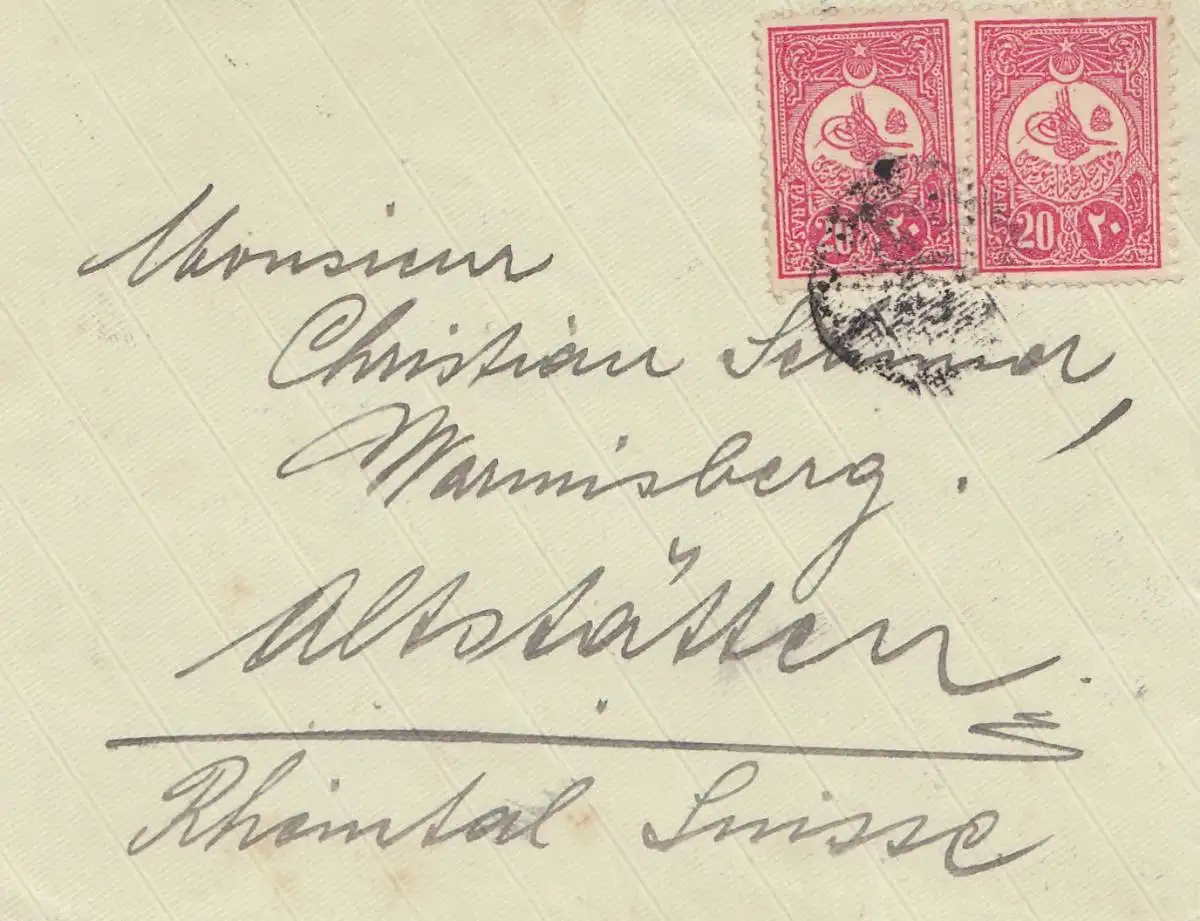 20 ٢٠ 20 ٢٠
PARAS PARAS
Monsieur
Christian
Warmisberg.
Altstätten
Rheintal Suisse